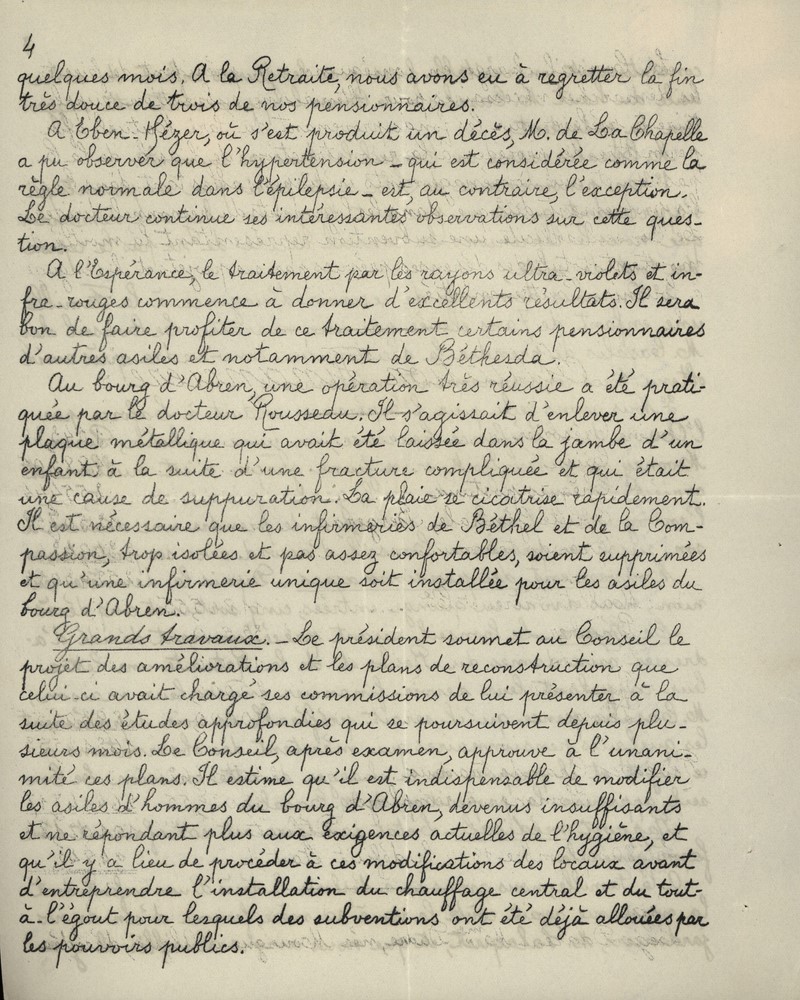 4
quelques mois. A la Retraite, nous avons eu à regretter la fin
très douce de trois de nos pensionnaires.
A Eben-Hézer, où s'est produit un décès, M. de La Chapelle
a pu observer que l'hypertension - qui est considérée comme la
règle normale dans l'épilepsie - est, au contraire, l'exception.
Le docteur continue ses intéressantes observations sur cette ques-
tion.
A l'Espérance, le traitement par les rayons ultra-violets et in-
fra-rouges commence à donner d'excellents résultats. Il sera
bon de faire profiter de ce traitement certains pensionnaires
d'autres asiles et notamment de Béthesda.
Au bourg d'Abren, une opération très réussie a été prati-
quée par le docteur Rousseau. Il s'agissait d'enlever une
plaque métallique qui avait été laissée dans la jambe d'un
enfant à la suite d'une fracture compliquée et qui était
une cause de suppuration. La plaie se cicatrise rapidement.
Il est nécessaire que les infirmeries de Béthel et de la Com-
passion, trop isolées et pas assez confortables, soient supprimées
et qu'une infirmerie unique soit installée pour les asiles du
bourg d'Abren.
Grands travaux. - Le président soumet au Conseil le
projet des améliorations et les plans de reconstruction que
celui-ci avait chargé ses commissions de lui présenter à la
suite des études approfondies qui se poursuivent depuis plu-
sieurs mois. Le Conseil, après examen, approuve à l'unani-
mité ces plans. Il estime qu'il est indispensable de modifier
les asiles d'hommes du bourg d'Abren, devenus insuffisants
et ne répondant plus aux exigences actuelles de l'hygiène, et
qu'il y a lieu de procéder à ces modifications des locaux avant
d'entreprendre l'installation du chauffage central et du tout-
à-l'égout pour lesquels des subventions ont été déjà allouées par
les pouvoirs publics.